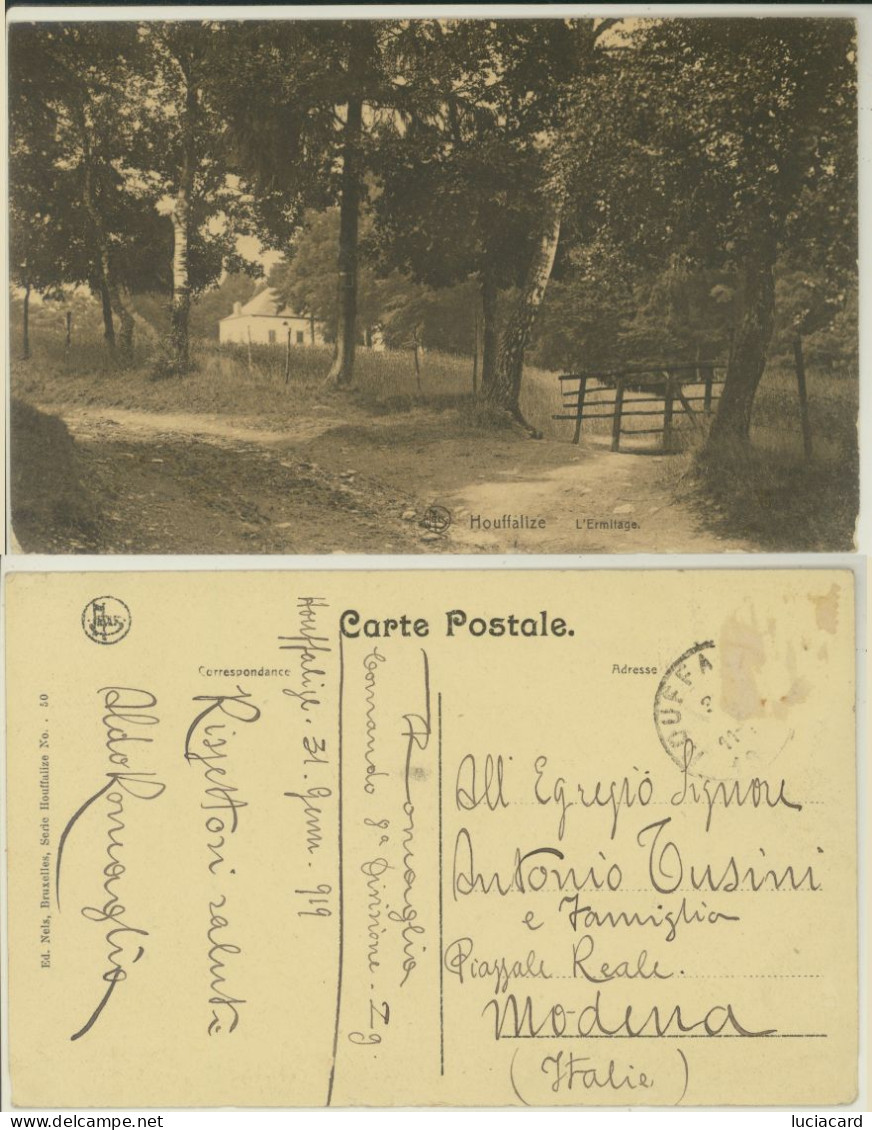 Houffalize L'Ermitage.
Carte Postale.
Correspondance
Adresse
HOUFFA
Houffalize. 31. Genn. 919
Rispettosi saluti
Aldo Romaglia
Romaglia
Comando 8ª Divisione - Zg.
All Egregio Signore
Antonio Tusini
e Famiglia
Piazzale Reale.
Modena
(Italie)
Ed. Nels, Bruxelles, Serie Houffalize No. . 50
luciacard